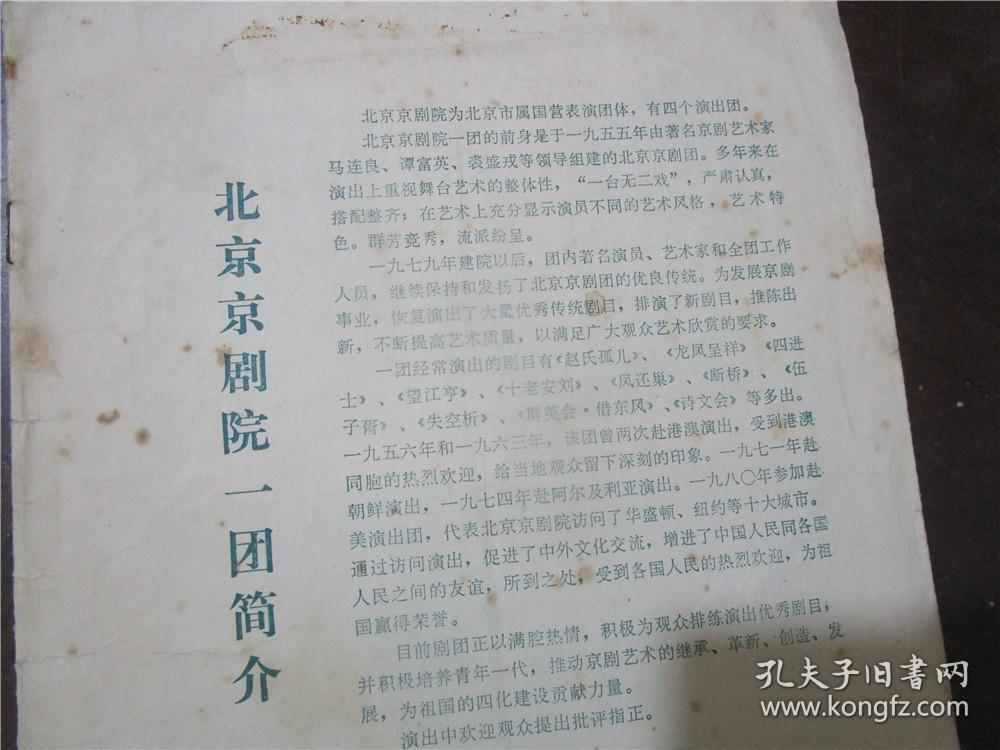 北京京剧院一团简介
北京京剧院为北京市属国营表演团体，有四个演出团。
北京京剧院一团的前身是于一九五五年由著名京剧艺术家
马连良、谭富英、裘盛戎等领导组建的北京京剧团。多年来在
演出上重视舞台艺术的整体性，“一台无二戏”，严肃认真，
搭配整齐；在艺术上充分显示演员不同的艺术风格，艺术特
色。群芳竞秀，流派纷呈。
一九七九年建院以后，团内著名演员、艺术家和全团工作
人员，继续保持和发扬了北京京剧团的优良传统。为发展京剧
事业，恢复演出了大量优秀传统剧目，排演了新剧目，推陈出
新，不断提高艺术质量，以满足广大观众艺术欣赏的要求。
一团经常演出的剧目有《赵氏孤儿》、《龙凤呈祥》《四进
士》、《望江亭》、《十老安刘》、《凤还巢》、《断桥》、《伍
子胥》、《失空斩》、《群英会·借东风》、《诗文会》等多出。
一九五六年和一九六三年，该团曾两次赴港澳演出，受到港澳
同胞的热烈欢迎，给当地观众留下深刻的印象。一九七一年赴
朝鲜演出，一九七四年赴阿尔及利亚演出。一九八〇年参加赴
美演出团，代表北京京剧院访问了华盛顿、纽约等十大城市。
通过访问演出，促进了中外文化交流，增进了中国人民同各国
人民之间的友谊，所到之处，受到各国人民的热烈欢迎，为祖
国赢得荣誉。
目前剧团正以满腔热情，积极为观众排练演出优秀剧目，
并积极培养青年一代，推动京剧艺术的继承、革新、创造、发
展，为祖国的四化建设贡献力量。
演出中欢迎观众提出批评指正。
孔夫子旧书网
www.kongfz.com